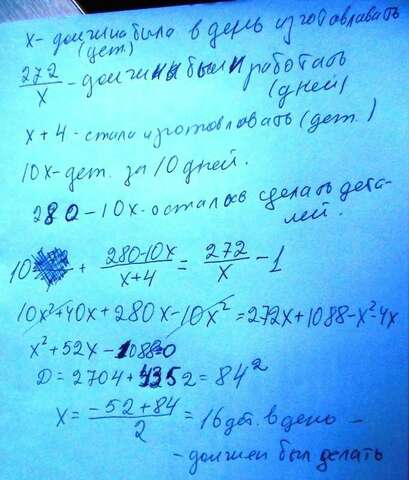 x - должна была в день изготавливать
(дет.)
272/x - должны были работать
(дней)
x + 4 - стали изготовлять (дет.)
10x - дет. за 10 дней.
280 - 10x - осталось сделать дета-
лей.
10 + (280-10x)/(x+4) = 272/x - 1
10x² + 40x + 280x - 10x² = 272x + 1088 - x² - 4x
x² + 52x - 1088 = 0
D = 2704 + 4352 = 84²
x = (-52 + 84)/2 = 16 дет. в день -
- должен был делать